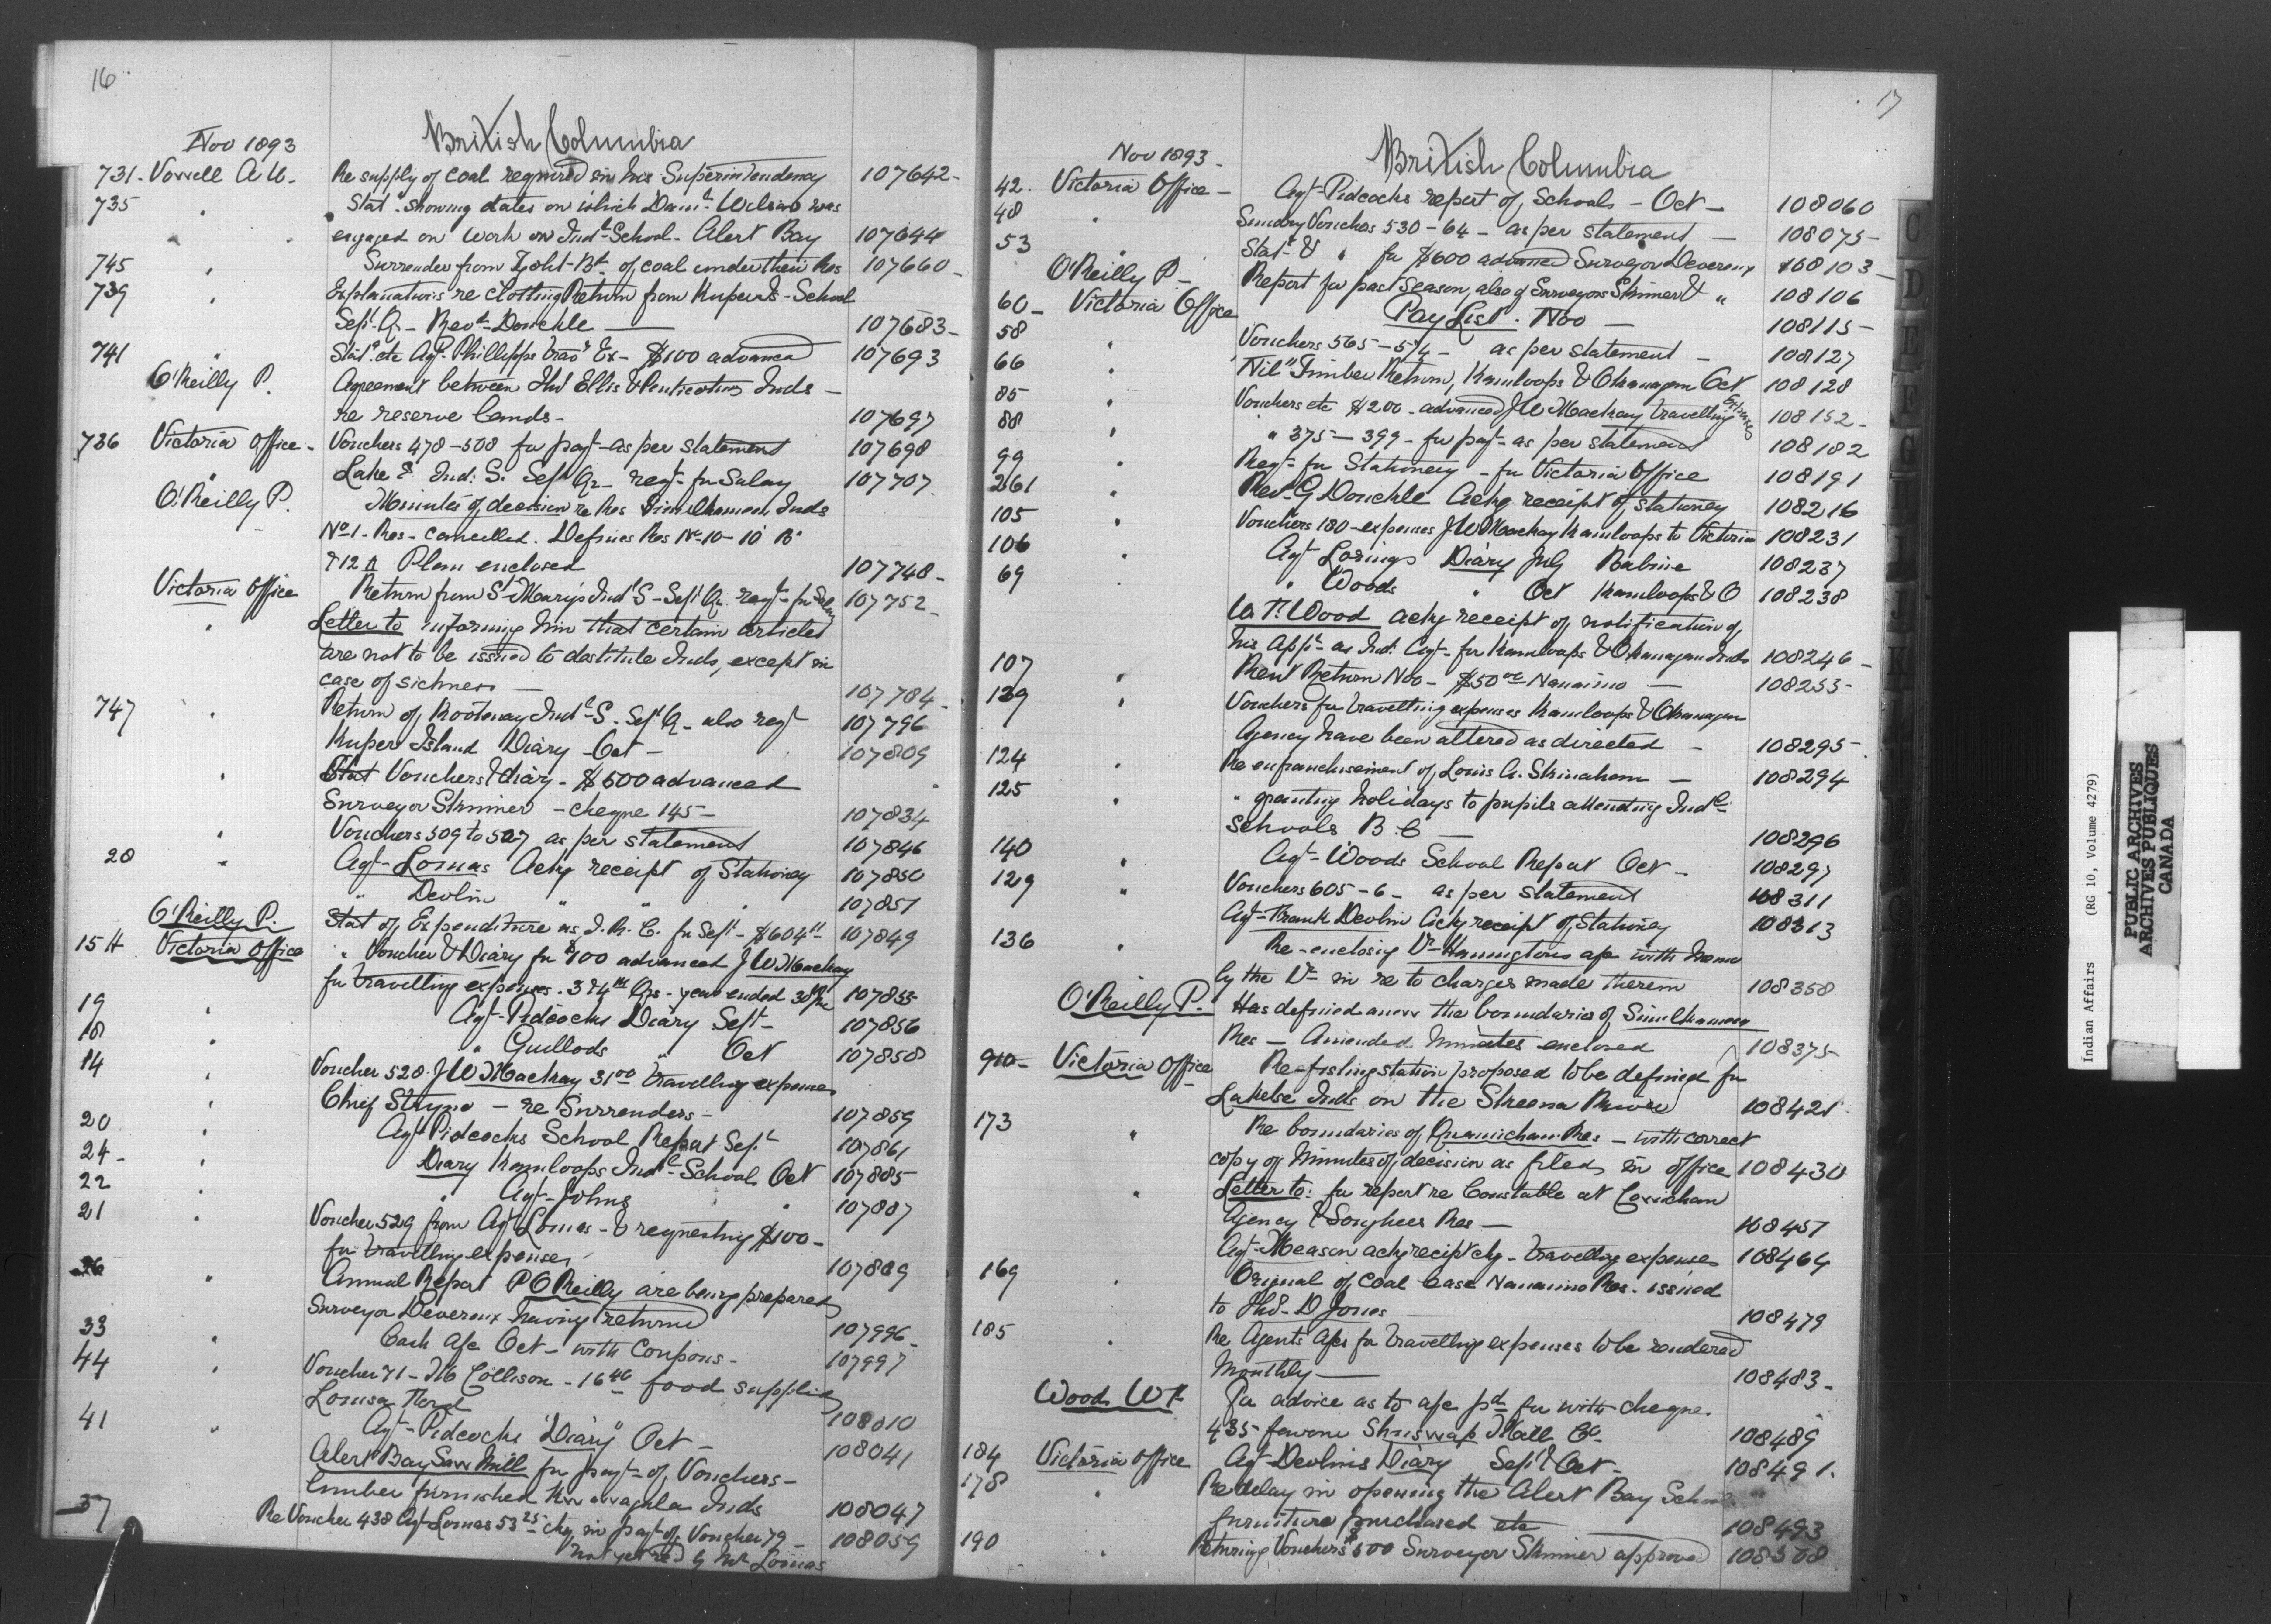 16
Nov 1893
British Columbia
731 - Vowell A W - Re supply of coal required in his Superintendency 107642 -
735 " Statt showing dates on which Danl Wilson was
engaged on work on Indl School - Alert Bay 107644
745 " Surrender from Bd of coal under their Res 107660 -
739 " Explanations re clothing Return from Kuper Id - School
Sept Qr - Revd Donckle — 107683 -
741 " Statt etc Agt Phillipps Trav Ex - $100 advanced 107693
O'Reilly P. Agreement between Thos Ellis & Penticton Inds -
re reserve lands - 107697
736 Victoria Office - Vouchers 478 - 508 for payt - as per statement 107698
" Lake Ind: S. Sept Qr - reqt for Salary 107707
O'Reilly P. Minutes of decision re Res Similkameen Inds
No 1 - Res - cancelled. Defines Res No 10 - 10 B
& 12 A Plan enclosed 107748 -
Victoria Office Return from St Mary's Indl S - Sept Qr reqt - for Salary 107752 -
" Letter to informing him that certain articles
are not to be issued to destitute Inds, except in
case of sickness — 107784 -
747 " Return of Kootenay Indl S. Sept Q - also reqt 107796
Kuper Island Diary Oct - 107809
" Stat Vouchers & diary - $500 advanced
Surveyor Skinner - cheque 145 - 107834
" Vouchers 509 to 527 as per statement 107846
28 " Agt - Lomas Ackg receipt of Stationey 107850
" Devlin " " " 107851
O'Reilly P. Stat of Expenditure as I. R. C. for Sept - $604 107849
15 Victoria Office " Voucher & Diary for $100 advanced J W Mackay
for travelling expenses. 3 & 4th Qrs - year ended 30 June 107855 -
19 " Agt - Pidcocks Diary Sept - 107856
18 " " Guillods " Oct 107858
14 " Voucher 528. J W Mackay 31.00 travelling expenses
" Chief - re Surrenders - 107859
20 " Agt Pidcocks School Report Sept 107861
24 - " Diary Kamloops Indl - School Oct 107885
22 " " Agt - Johns " 107887
21 " Voucher 529 from Agt Lomas - & requesting $100 -
for travelling expenses 107889
26 " Annual Report P O'Reilly are being prepared
Surveyor Devereux having returned 107996 -
33 " Cash a/c Oct - with Coupons - 107997
44 " Voucher 71 - Collison - 16 food supplied
Louisa 108010
41 " Agt - Pidcocks "Diary" Oct - 108041
Alert Bay Saw Mill for payt - of Vouchers -
lumber furnished Inds 108047
37 Re Voucher 438 Agt Lomas 53.25 - chq in payt of Voucher 79 - 108059
not yet recd by Mr Lomas
17
Nov 1893 -
British Columbia
42 - Victoria Office - Agt - Pidcocks report of Schools - Oct - 108060
48 " Sundry Vouchers 530 - 64 - as per statement — 108075 -
53 " Statt & " for $600 advanced Surveyor Devereux 108103 -
O'Reilly P - Report for past season, also of Surveyors Skinner & " 108106
60 - Victoria Office Pay List. Nov — 108115 -
58 " Vouchers 565 - 574 - as per statement - 108127
66 " "Nil" Timber Return, Kamloops & Okanagan Oct 108128
85 " Vouchers etc $200 - advanced J W Mackay travelling Expenses 108152 -
88 " " 375 - 399 - for payt - as per statement 108182
99 " Reqt - for Stationery - for Victoria Office 108191
261 " Revd G Donckle Ackg receipt of stationey 108216
105 " Vouchers 180 - expenses J W Mackay Kamloops to Victoria 108231
106 " Agt Lorings Diary July Babine 108237
69 " Woods " Oct Kamloops & O 108238
W. F. Wood ackg receipt of notification of
his Appt - as Ind: Agt - for Kamloops & Okanagan Inds 108246 -
107 " Rent Return Nov - $50.00 Nanaimo — 108255 -
139 " Vouchers for travelling expenses Kamloops & Okanagan
Agency have been altered as directed - 108295 -
124 " Re enfranchisement of Louis A. — 108294
125 " " granting holidays to pupils attending Indl
Schools B. C — 108296
140 " Agt - Woods School Report Oct - 108297
129 " Vouchers 605 - 6 - as per statement 108311
Agt - Frank Devlin Ackg receipt of Stationey 108313
136 " Re - enclosing Dr Hanningtons a/c with memo
by the Dr in re to charges made therein 108358
O'Reilly P. Has defined anew the boundaries of Similkameen
Res - Amended Minutes enclosed 108375 -
910 - Victoria Office Re - fishing station proposed to be defined for
Lakelse Inds on the Skeena River 108421
173 " Re boundaries of Quamichan Res - with correct
copy of minutes of decision as filed in office 108430
" Letter to: for report re Constable at Cowichan
Agency & Songhees Res — 108457
Agt - Meason ackg receipt chq - travelling expenses 108464
169 " Original of Coal Lease Nanaimo Res. issued
to Thos - D Jones 108479
185 " Re Agents A/cs for travelling expenses to be rendered
monthly — 108483 -
Wood W F For advice as to a/c pd for with cheque.
435 favour Shuswap Mill Co - 108489
184 Victoria Office Agt Devlins Diary Sept & Oct - 108491.
178 " Re delay in opening the Alert Bay School
furniture purchased etc 108493
190 " Returning Vouchers $500 Surveyor Skinner approved 108508
C
D
E
F
G
I
J
K
Indian Affairs (RG 10, Volume 4279)
PUBLIC ARCHIVES
ARCHIVES PUBLIQUES
CANADA